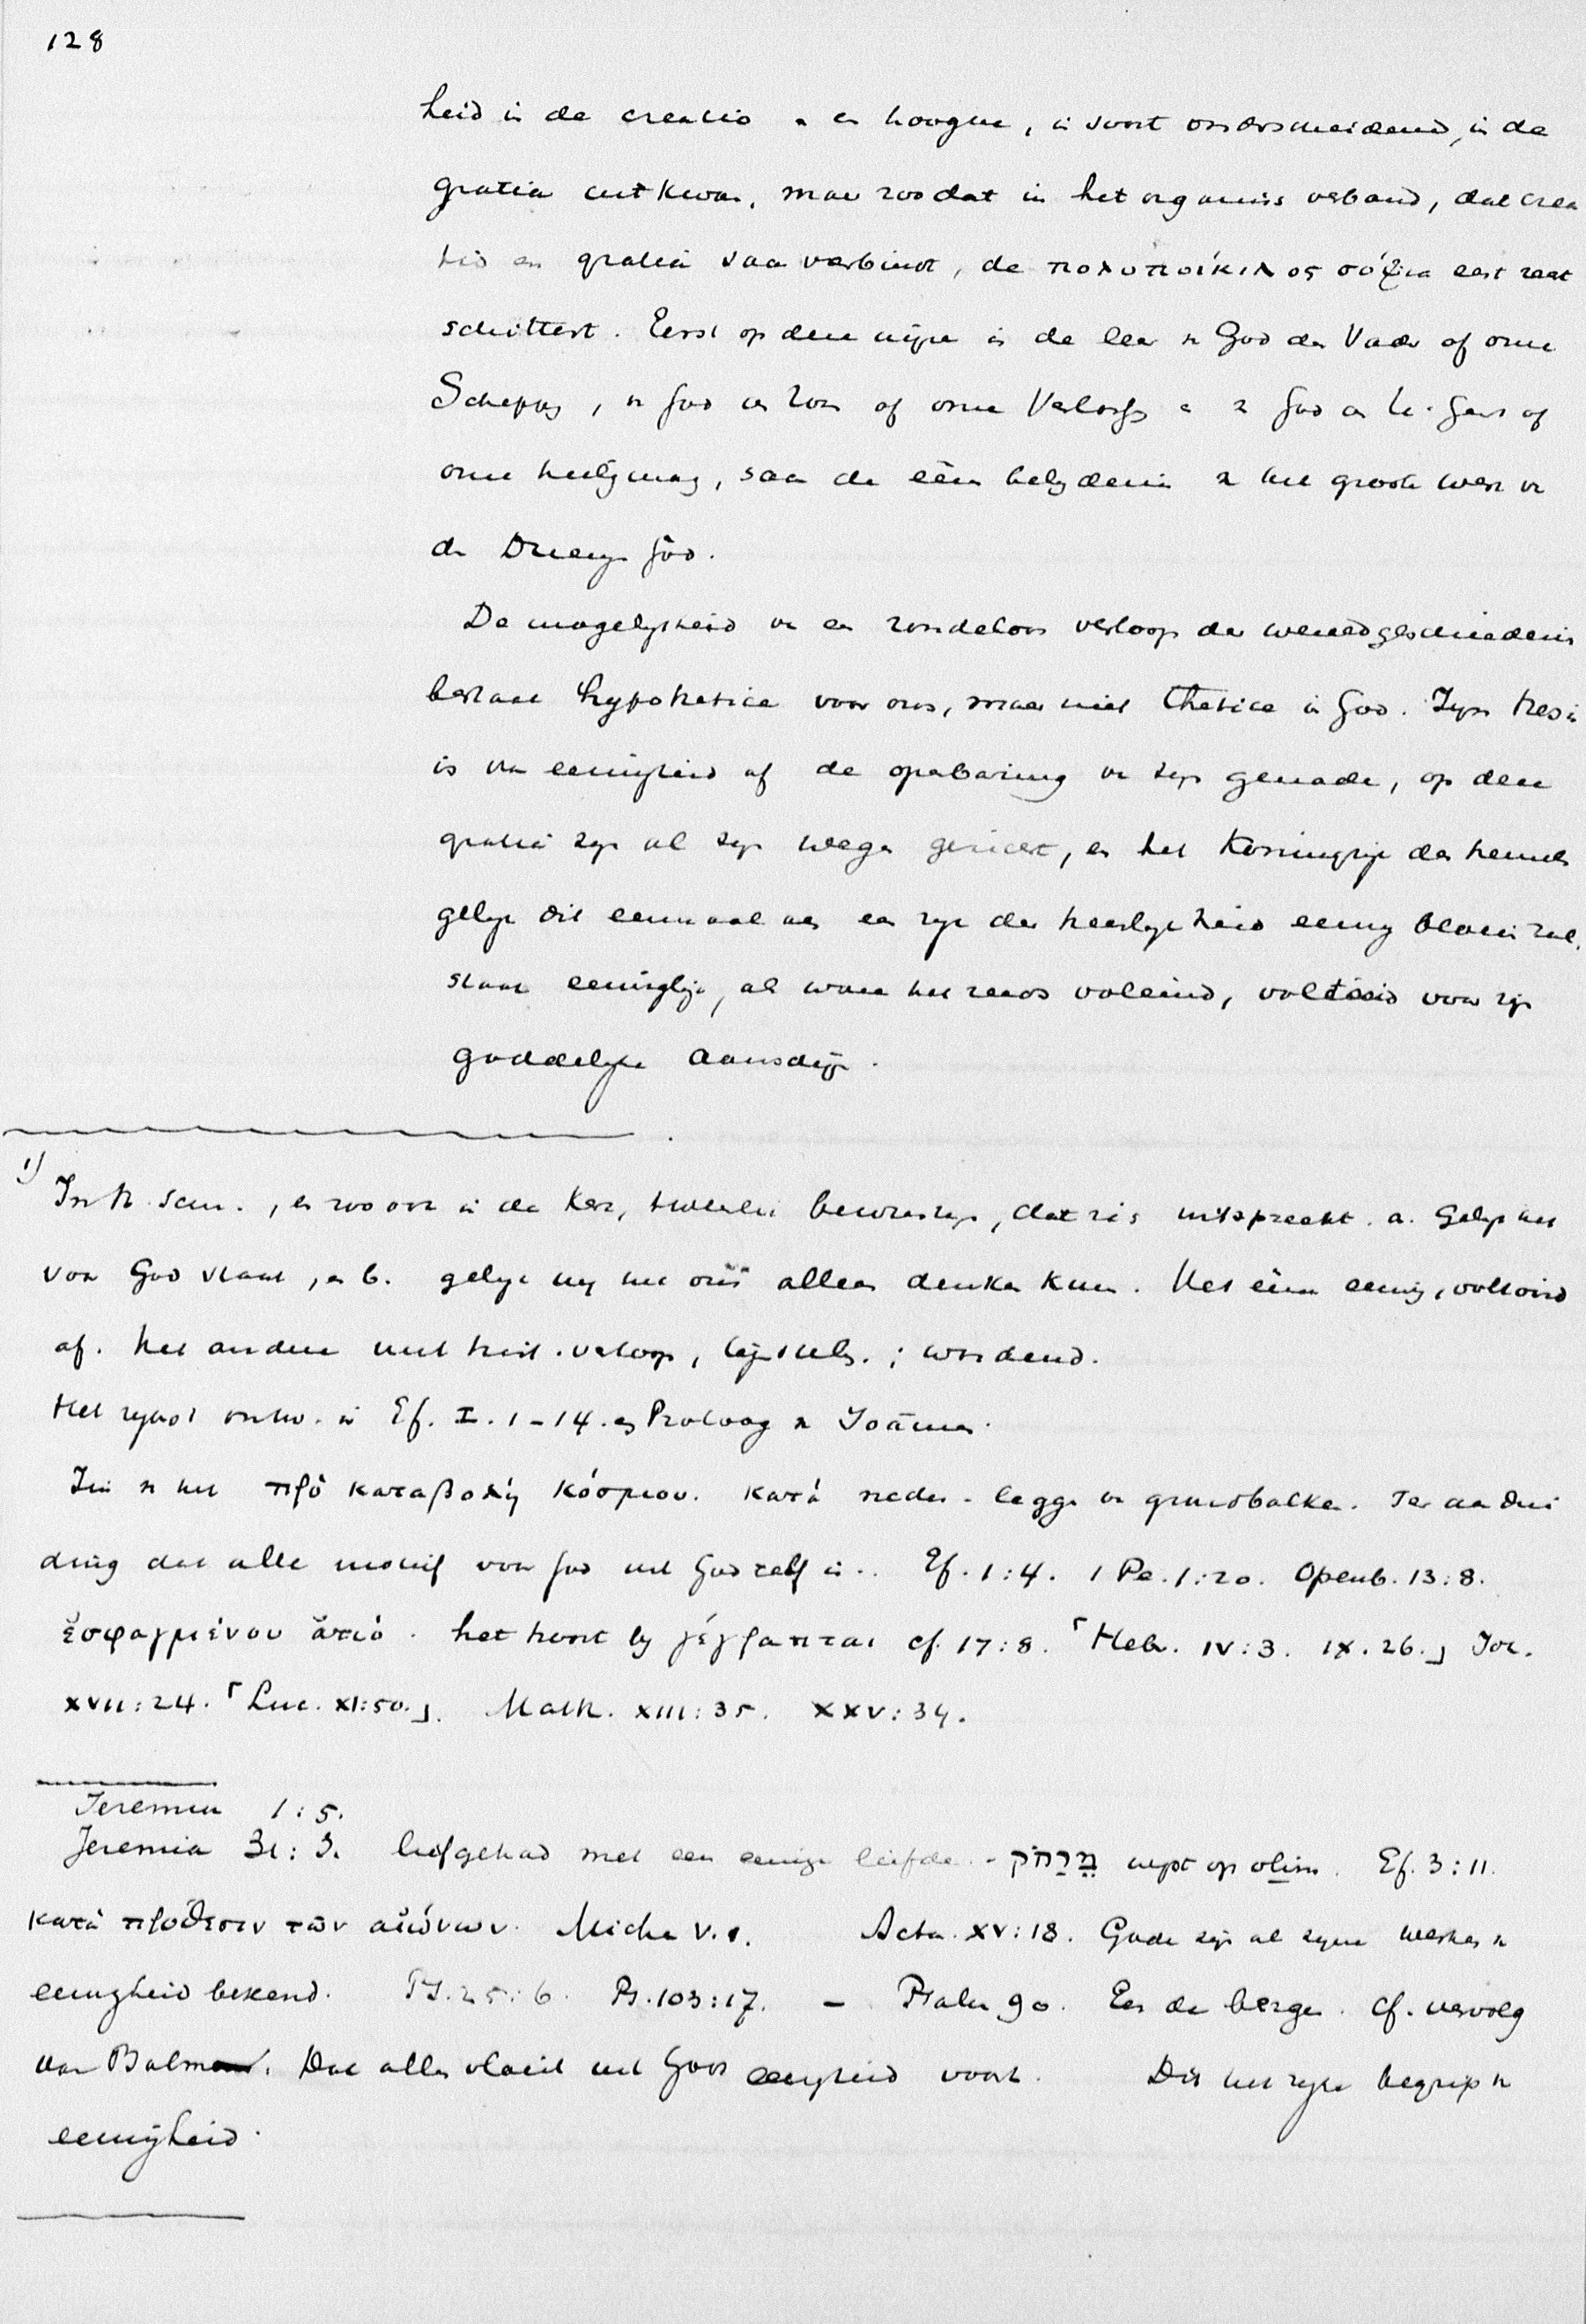 128
heid in de creatio en hoogere, in soort onderscheiden, in de
gratia uitkwam, maar zoo dat in het organisch verband, dat crea
tio en gratia saam verbindt, de πολυποίκιλος σόφια eerst recht
schittert. Eerst op deze wijze is de leer v God den Vader of onze
Schepping, v God den Zoon of onze Verlossing en v God den H. Geest of
onze heiligmaking, saam de één belydenis v het groote werk v
den Drieenigen God.
De mogelykheid v een zondeloos verloop der wereldgeschiedenis
bestaat hypothetice voor ons, maar niet thetice in God. Zyn thesis
is van eeuwigheid af de openbaring v zyn genade, op deze
gratia zyn al zyn wegen gericht, en het Koninkryk der hemelen
gelyk dit eenmaal als een ryk der heerlykheid eeuwig bloeien zal,
staat eeuwiglyk, als ware het reeds voleind, voltooid voor zyn
goddelyk aanschyn.
1) In H. Schr., en zoo ook in de Kerk, tweeërlei bewustzyn, dat zich uitspreekt. a. Gelyk het
voor God staat, en b. gelyk wy het ons alleen denken kunnen. Het één eeuwig, voltooid
af. het andere met hist. verloop, tydel.; wordend.
Het rykst ontw. in Ef. I. 1-14. en Proloog v Joannes.
Zin v het πρὸ καταβολὴ κόσμου. κατά neder - leggen v grondbalken. Ter aandui
ding dat alle motief voor God uit God zelf is.. Ef. 1:4. 1 Pe. 1:20. Openb. 13:8.
ἐσφαγμένου ἀπὸ. het hoort by γέγραπται cf. 17:8. ⌈Hebr. IV:3. IX.26.⌋ Joh.
XVII:24. ⌈Luc. XI:50.⌋. Matth. XIII:35. XXV:34.
Jeremia 1:5.
Jeremia 31:3. liefgehad met een eeuwige liefde. - מֵרָחֹק wyst op olim. Ef. 3:11.
κατὰ πρόθεσιν τῶν αἰώνων. Micha V.1. Acta. XV:18. Gode zyn al zyne werken v
eeuwigheid bekend. Ps. 25:6. Ps. 103:17. - Psalm 90. Eer de bergen. cf. vervolg
van Balm. Dat alles vloeit uit Gods eeuwigheid voort. Dit het ryke begrip v
eeuwigheid.